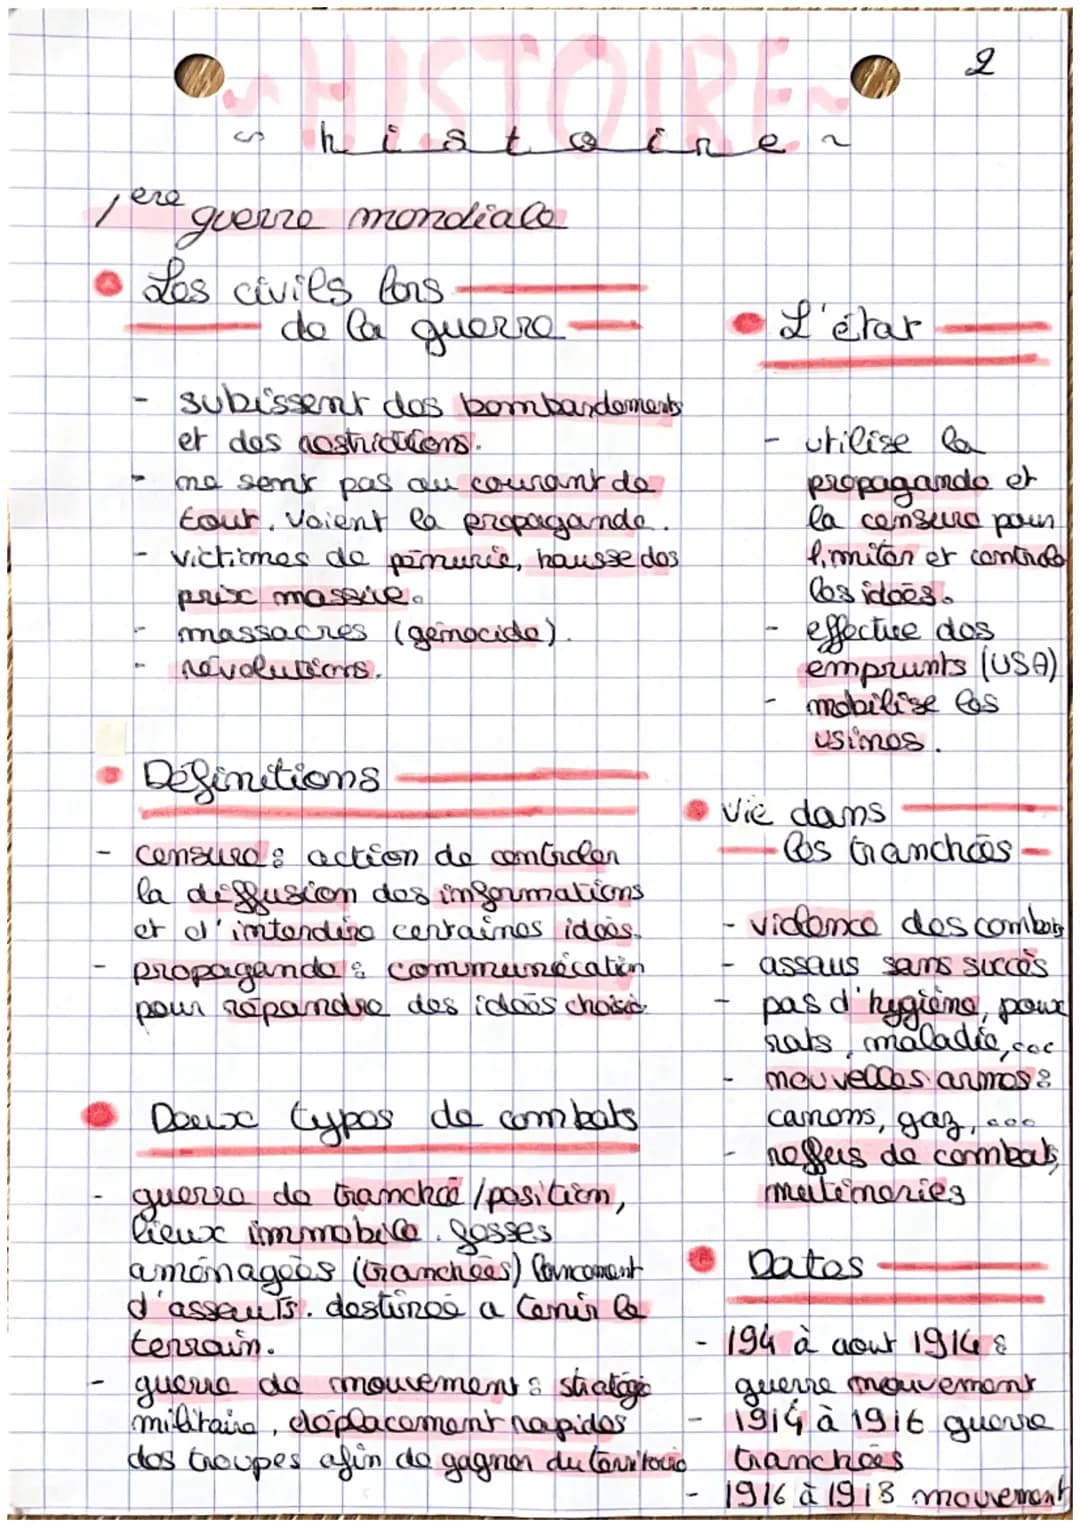 2
~HISTOIRE~
~ histoire ~
1ere guerre mondiale
Les civils lors
de la guerre
- subissent des bombardements
et des restrictions.
- ne sont pas au courant de
tout, voient la propagande.
- victimes de pénurie, hausse des
prix massive.
- massacres (génocide).
- révolutions.
Définitions
- censure : action de controler
la diffusion des informations
et d'interdire certaines idées.
- propagande : communication
pour répandre des idées choisie
Deux types de combats
- guerre de tranchée / position,
lieux immobile. fosses
aménagées (tranchées) lancement
d'assauts. destinée a tenir le
terrain.
- guerre de mouvement : stratégie
militaire, déplacement rapides
des troupes afin de gagner du territoire
L'état
- utilise la
propagande et
la censure pour
limiter et controle
les idées.
- effectue des
emprunts (USA)
- mobilise les
usines.
Vie dans
les tranchées
- violence des combats
- assaus sans succès
- pas d'hygiène, poux
rats, maladie, ...
- nouvelles armes :
canons, gaz, ...
- reffus de combats,
mutineries
Dates
- 194 à aout 1914 :
guerre mouvement
- 1914 à 1916 guerre
tranchées
- 1916 à 1918 mouvement